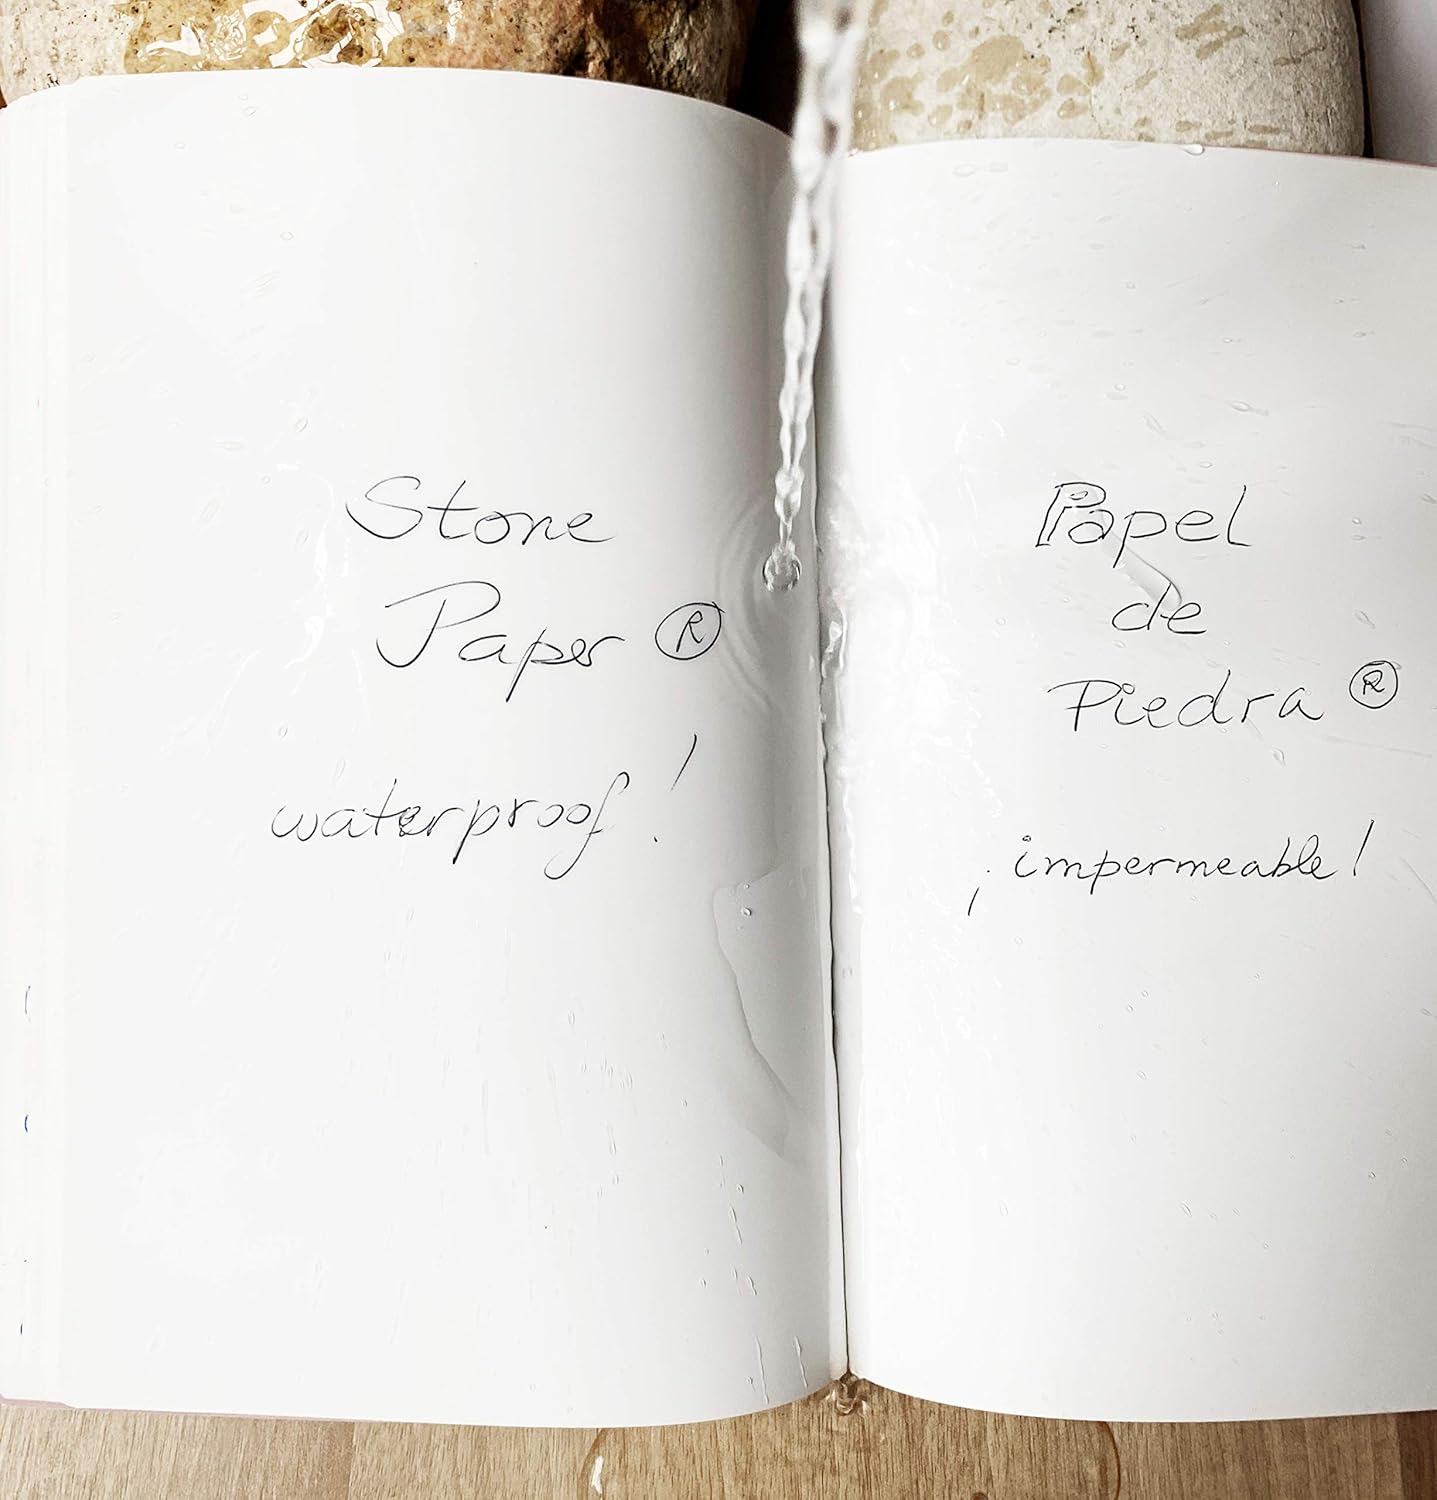 Stone
Paper ®
waterproof!
Papel
de
Piedra ®
¡impermeable!